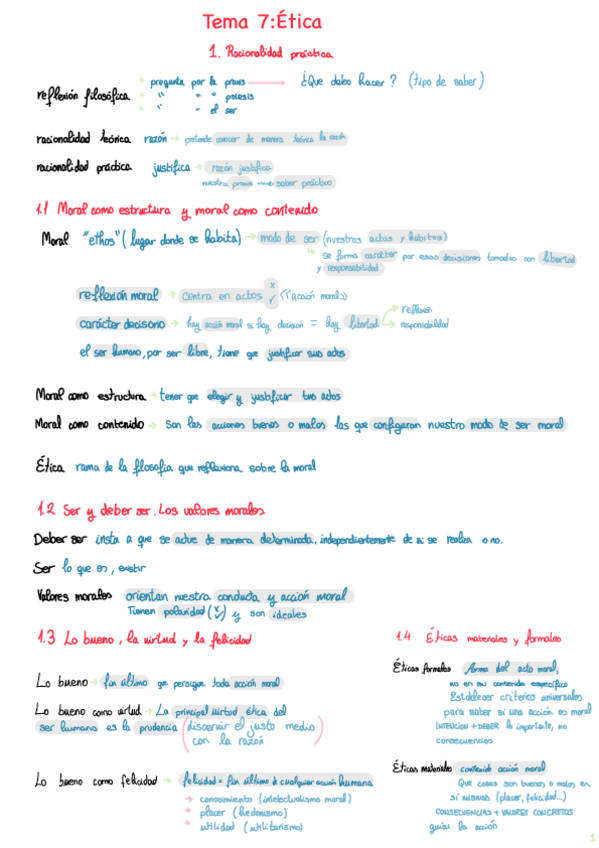 Tema 7:Ética
1. Racionalidad práctica
reflexión filosófica → pregunta por la praxis → ¿Que debo hacer? (tipo de saber)
→ " " " poiesis
→ " " el ser
racionalidad teórica razón → pretende conocer de manera teórica la acción
racionalidad práctica justifica → razón justifica
nuestra praxis saber práctico
1.1 Moral como estructura y moral como contenido
Moral "ethos" (lugar donde se habita) → modo de ser (nuestros actos y hábitos)
se forma carácter por esas decisiones tomadas con libertad
y responsabilidad
reflexión moral → centra en actos x ✓ (acción moral)
carácter decisorio → hay acción moral si hay decisión = hay libertad → reflexión
→ responsabilidad
el ser humano, por ser libre, tiene que justificar sus actos
Moral como estructura → tener que elegir y justificar tus actos
Moral como contenido → Son las acciones bienas o malas las que configuran nuestro modo de ser moral
Ética rama de la filosofia que reflexiona sobre la moral
1.2 Ser y deber ser. Los valores morales
Deber ser insta a que se actue de manera determinada, independientemente de si se realiza o no.
Ser lo que es, existir
Valores morales orientan nuestra conducta y acción moral
Tienen polaridad (x ✓) y son ideales
1.3 Lo bueno, la virtud y la felicidad
Lo bueno → fin último que persigue toda acción moral
Lo bueno como virtud → La principal virtud ética del
ser humano es la prudencia (discernir el justo medio
con la razón)
Lo bueno como felicidad → felicidad = fin último de cualquier acción humana
→ conocimiento (intelectualismo moral)
→ placer (hedonismo)
→ utilidad (utilitarismo)
1.4 Éticas materiales y formales
Éticas formales forma del acto moral,
no en su contenido específico
Establecer criterios universales
para saber si una acción es moral
INTENCION + DEBER lo importante, no
consecuencias
Éticas materiales contenido acción moral
Que cosas son buenas o malas en
sí mismas (placer, felicidad...)
CONSECUENCIAS + VALORES CONCRETOS
guían la acción
1